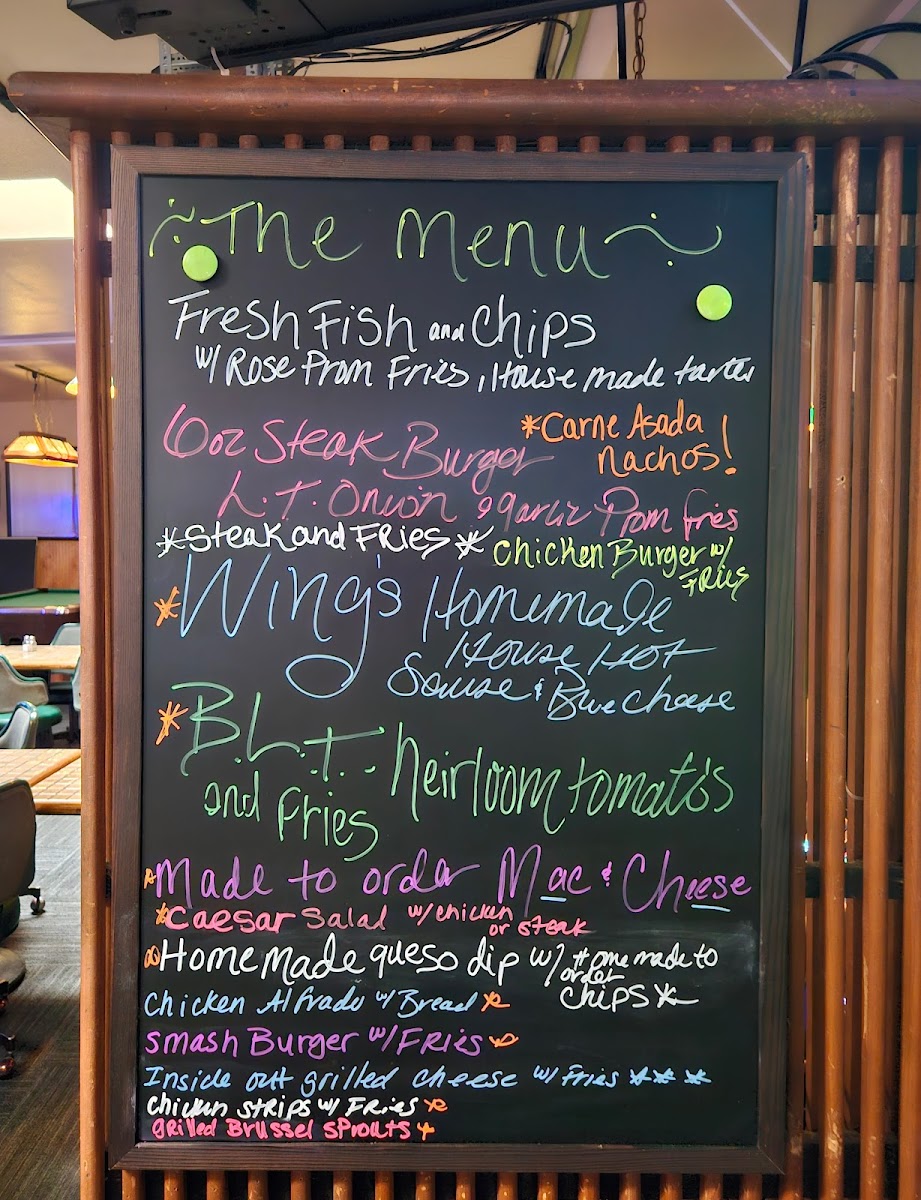 ~The Menu~
Fresh Fish and Chips
w/ Rose Prom Fries, House made tarter
6oz Steak Burger
L.T. Onion & garlic Prom fries
*Carne Asada
Nachos!
*Steak and Fries*
Chicken Burger w/
Fries
*Wing's Homemade
House Hot
Sause & Blue Cheese
*B.L.T. heirloom tomato's
and Fries
*Made to order Mac & Cheese
*Caesar Salad w/ chicken
or steak
Homemade queso dip w/ Home made to
order
chips*
Chicken Alfrado w/ Bread*
Smash Burger w/ Fries
Inside out grilled cheese w/ Fries ***
chicken strips w/ Fries *
grilled Brussel sprouts *